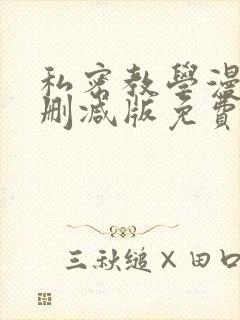 私密教學漫
刪減版免費
三秋縋×田口